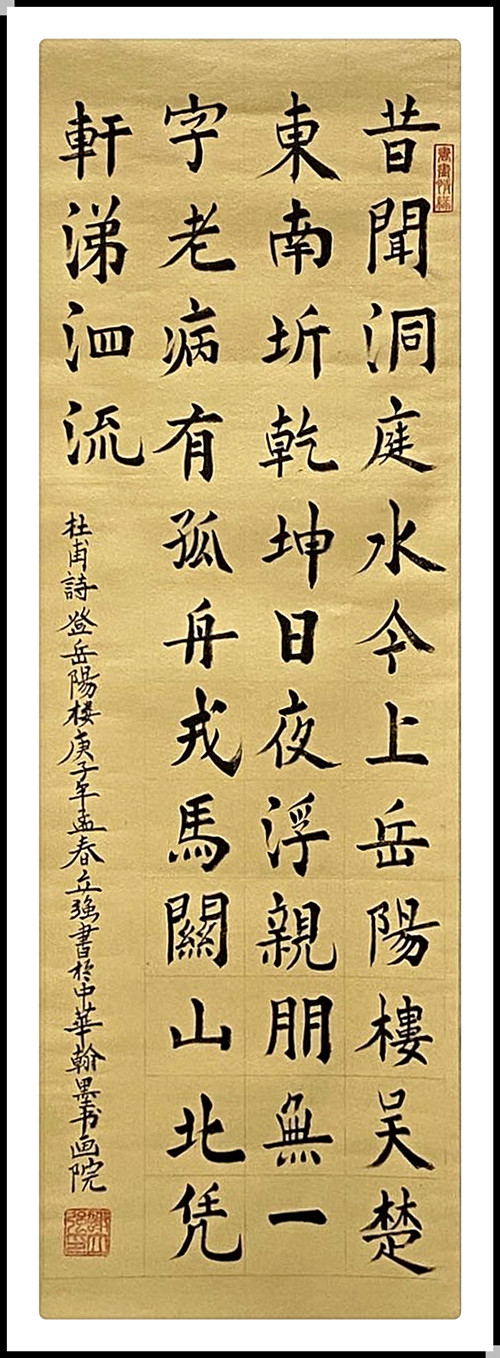 昔聞洞庭水今上岳陽樓吴楚
東南坼乾坤日夜浮親朋無一
字老病有孤舟戎馬關山北凭
軒涕泗流
杜甫詩登岳陽楼庚子年孟春立强書於中華翰墨书画院